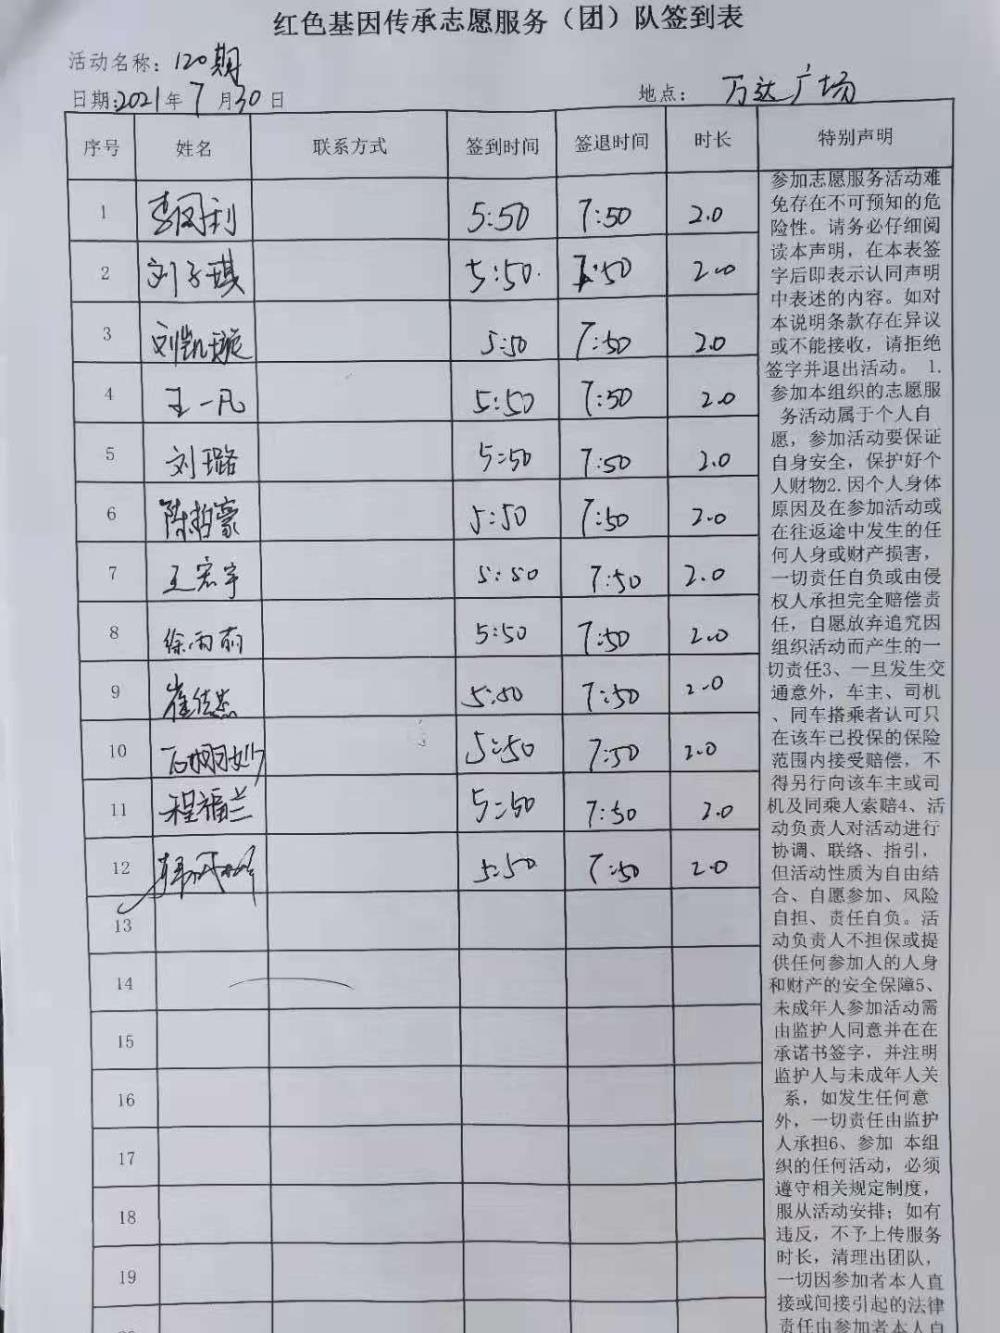 红色基因传承志愿服务（团）队签到表
活动名称：120期
日期:2021年7月30日 地点：万达广场
序号 姓名 联系方式 签到时间 签退时间 时长 特别声明
1 5:50 7:50 2.0
2 刘子琪 5:50 7:50 2.0
3 刘凯璇 5:50 7:50 2.0
4 王一凡 5:50 7:50 2.0
5 刘璐 5:50 7:50 2.0
6 陈柏豪 5:50 7:50 2.0
7 王宏宇 5:50 7:50 2.0
8 徐雨萌 5:50 7:50 2.0
9 5:50 7:50 2.0
10 5:50 7:50 2.0
11 程福兰 5:50 7:50 2.0
12 5:50 7:50 2.0
13
14
15
16
17
18
19
参加志愿服务活动难
免存在不可预知的危
险性。请务必仔细阅
读本声明，在本表签
字后即表示认同声明
中表述的内容。如对
本说明条款存在异议
或不能接收，请拒绝
签字并退出活动。 1.
参加本组织的志愿服
务活动属于个人自
愿，参加活动要保证
自身安全，保护好个
人财物2.因个人身体
原因及在参加活动或
在往返途中发生的任
何人身或财产损害，
一切责任自负或由侵
权人承担完全赔偿责
任，自愿放弃追究因
组织活动而产生的一
切责任3、一旦发生交
通意外，车主、司机
、同车搭乘者认可只
在该车已投保的保险
范围内接受赔偿，不
得另行向该车主或司
机及同乘人索赔4、活
动负责人对活动进行
协调、联络、指引，
但活动性质为自由结
合、自愿参加、风险
自担、责任自负。活
动负责人不担保或提
供任何参加人的人身
和财产的安全保障5、
未成年人参加活动需
由监护人同意并在在
承诺书签字，并注明
监护人与未成年人关
系，如发生任何意
外，一切责任由监护
人承担6、参加 本组
织的任何活动，必须
遵守相关规定制度，
服从活动安排；如有
违反，不予上传服务
时长，清理出团队，
一切因参加者本人直
接或间接引起的法律
责任由参加者本人自